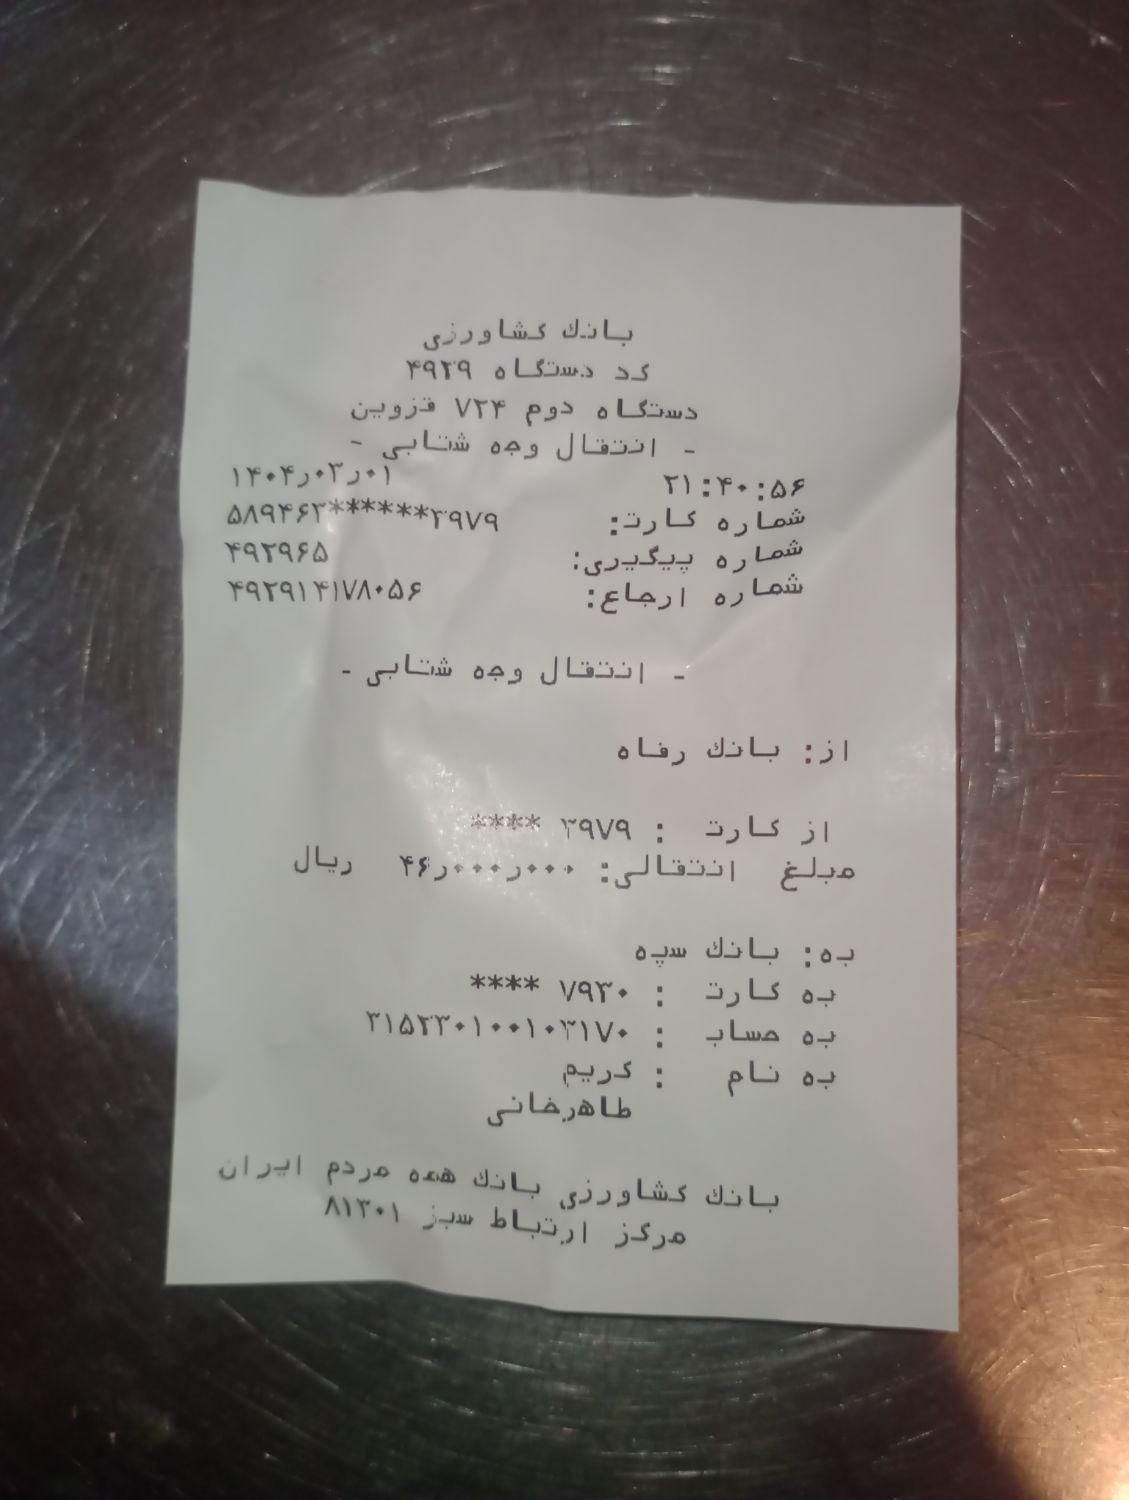 بانک کشاورزی
کد دستگاه ۴۹۲۹
دستگاه دوم ۷۲۴ قزوین
- انتقال وجه شتابی -
۲۱:۴۰:۵۶ ۱۴۰۴ر۰۳ر۰۱
شماره کارت: ۵۸۹۴۶۳******۳۹۷۹
شماره پیگیری: ۴۹۲۹۶۵
شماره ارجاع: ۴۹۲۹۱۴۱۷۸۰۵۶
- انتقال وجه شتابی -
از: بانک رفاه
از کارت : ۳۹۷۹ ****
مبلغ انتقالی: ۴۶ر۰۰۰ر۰۰۰ ریال
به: بانک سپه
به کارت : ۷۹۳۰ ****
به حساب : ۳۱۵۲۳۰۱۰۰۱۰۳۱۷۰
به نام : کریم
طاهرخانی
بانک کشاورزی بانک همه مردم ایران
مرکز ارتباط سبز ۸۱۳۰۱